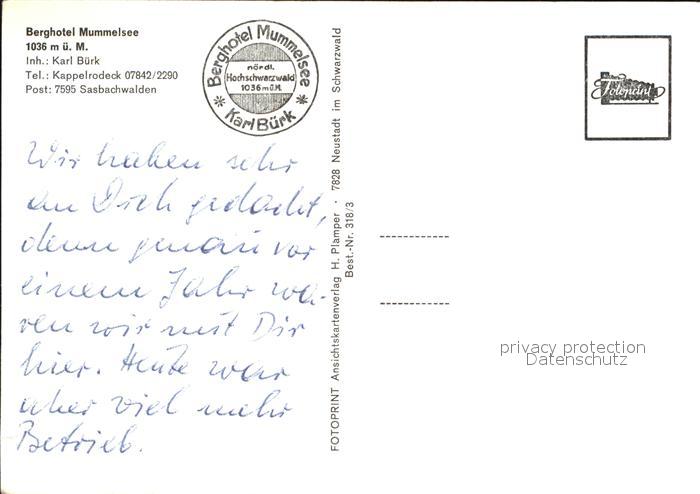 Berghotel Mummelsee
1036 m ü. M.
Inh.: Karl Bürk
Tel.: Kappelrodeck 07842/2290
Post: 7595 Sasbachwalden
Berghotel Mummelsee
nördl.
Hochschwarzwald
1036 m ü.M.
* Karl Bürk *
Fotoprint
Wir haben sehr
an Dich gedacht,
denn genau vor
einem Jahr wa-
ren wir mit Dir
hier. Heute war
aber viel mehr
Betrieb.
FOTOPRINT Ansichtskartenverlag H. Plamper · 7828 Neustadt im Schwarzwald
Best.-Nr. 318/3
privacy protection
Datenschutz